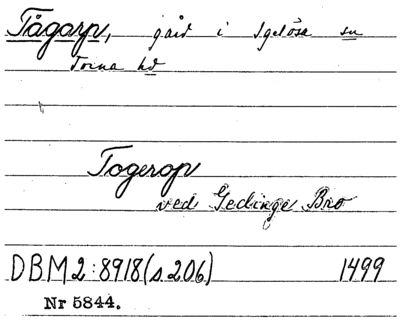 Tågarp, gård i Igelösa sn
Torna hd
Togerop
ved Gedinge Bro
DBM 2:8918 (s 206) 1499
Nr 5844.